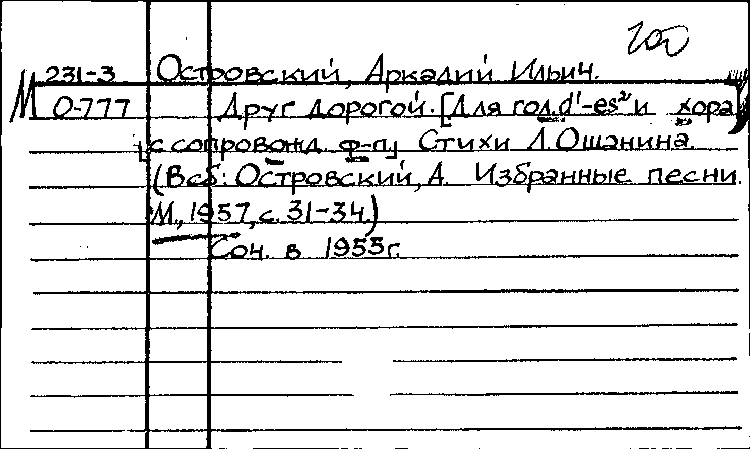 200
231-3 Островский, Аркадий Ильич.
М О-777 Друг дорогой. [Для гол. d'-es² и хора
с сопровожд. ф-п] Стихи Л. Ошанина.
(В сб: Островский, А. Избранные песни.
М., 1957, с. 31-34.)
Соч. в 1955г.